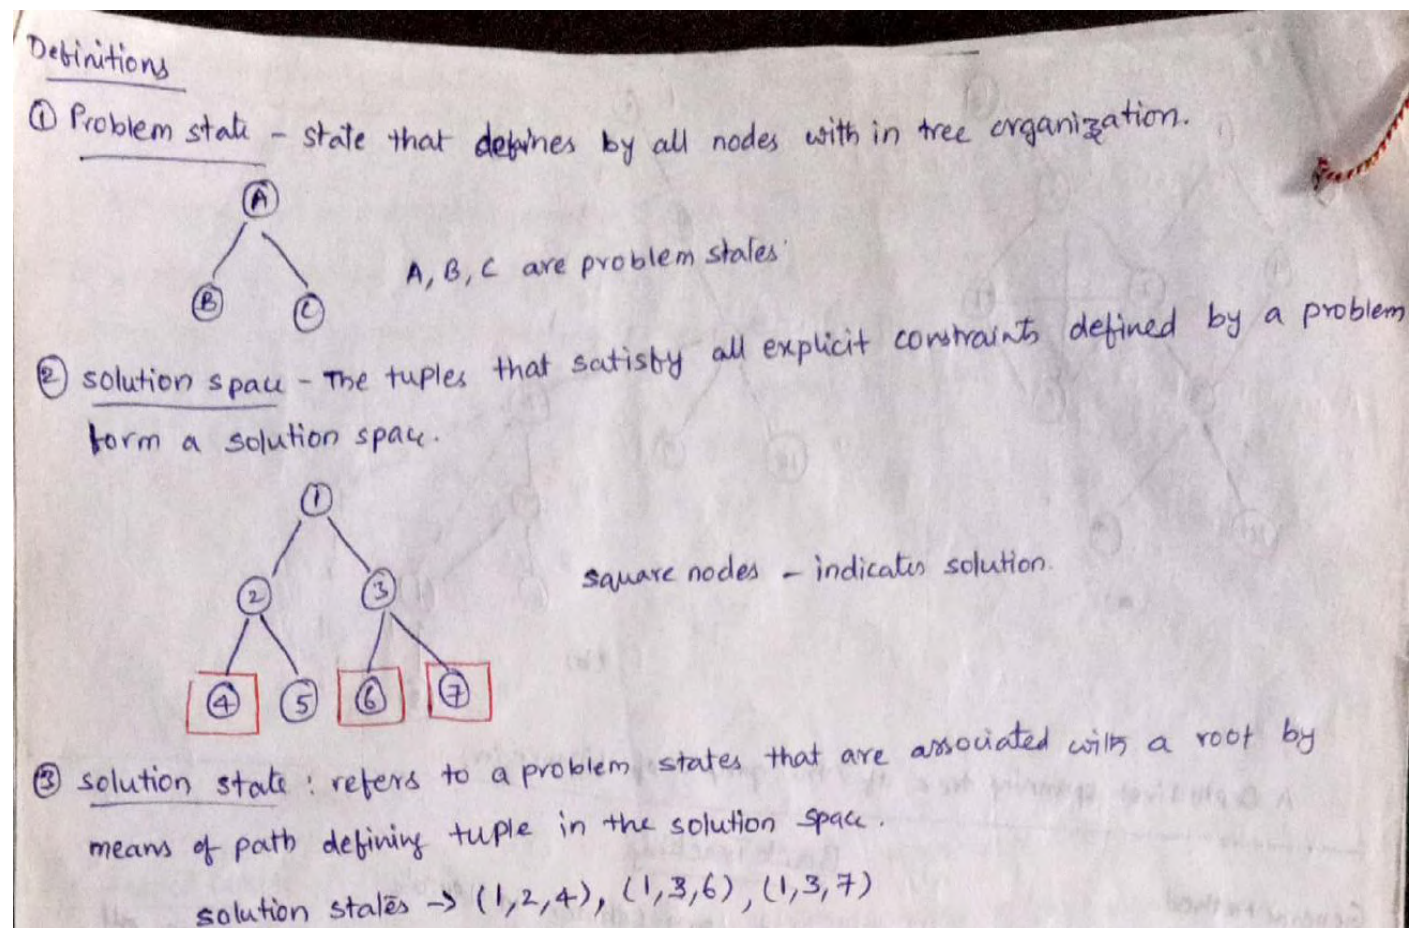 Definitions
① Problem state - state that defines by all nodes with in tree organization.
A
B C
A, B, C are problem states
② solution space - The tuples that satisfy all explicit constraints defined by a problem
form a solution space.
1
2 3
square nodes - indicates solution.
4 5 6 7
③ solution state : refers to a problem states that are associated with a root by
means of path defining tuple in the solution space.
solution states → (1,2,4), (1,3,6), (1,3,7)